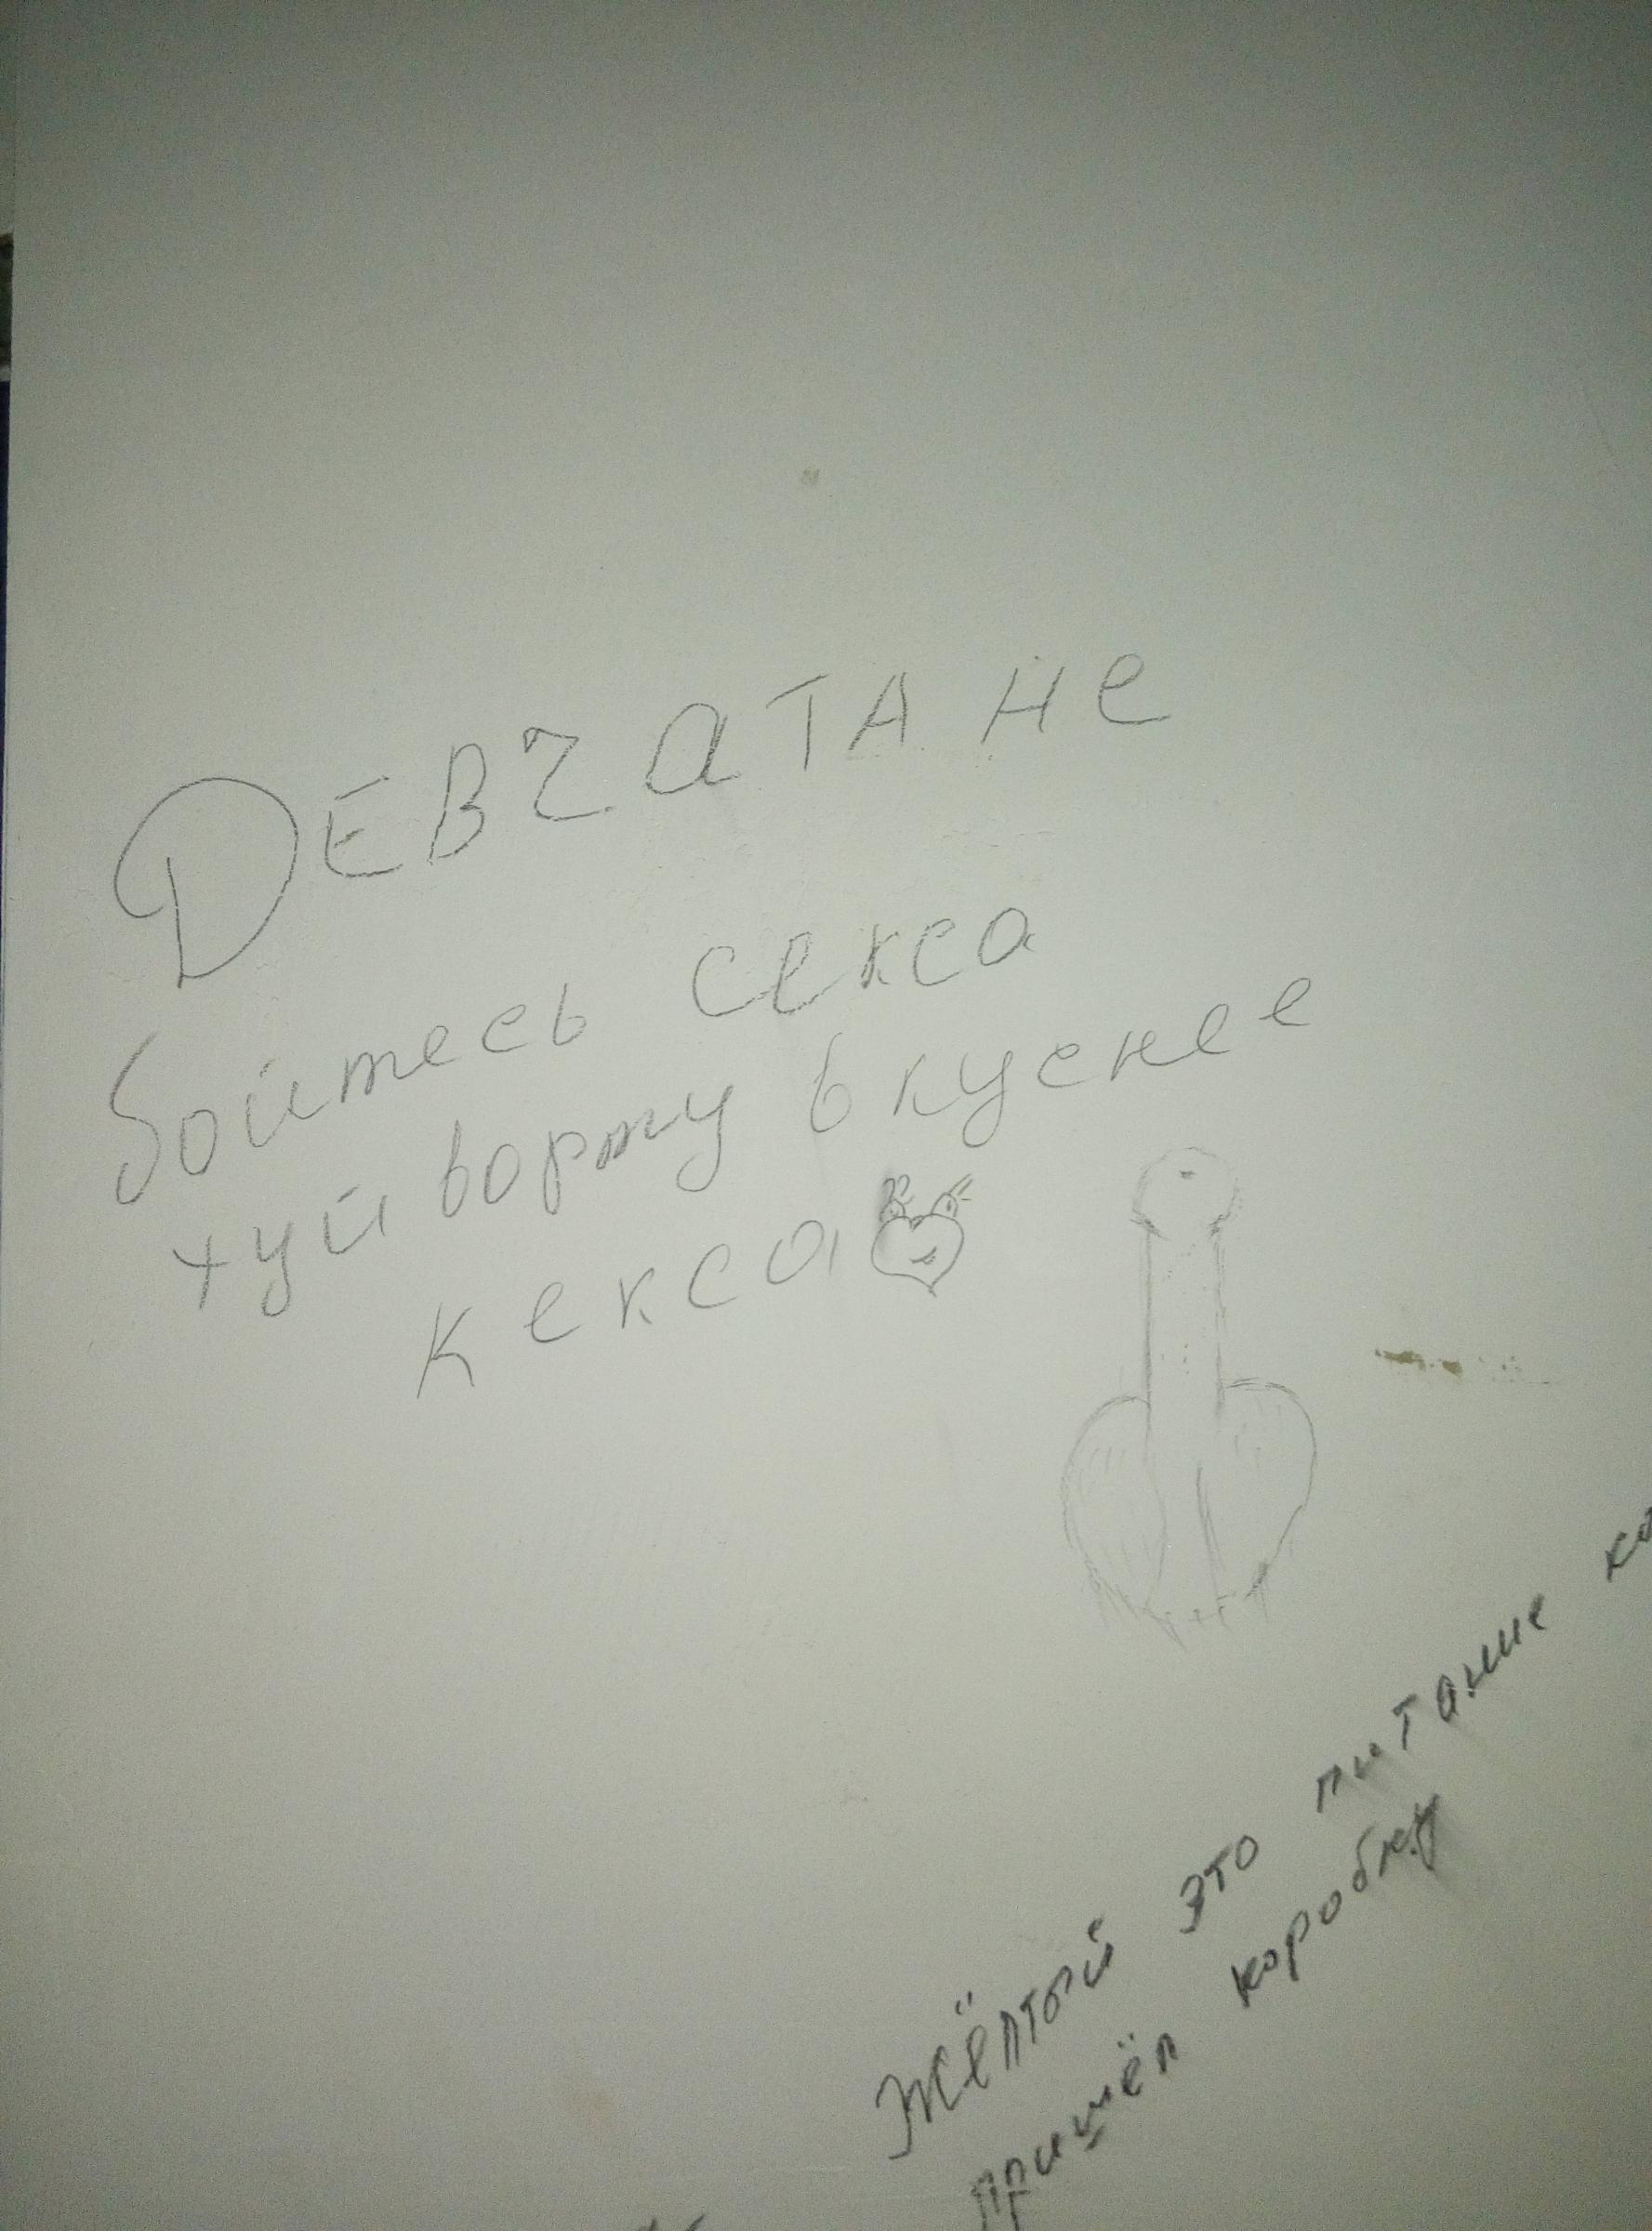 ДЕВЧАТА не
бойтесь секса
хуй ворту вкуснее
кекса
Жёлтый это питание
пришёл коробку